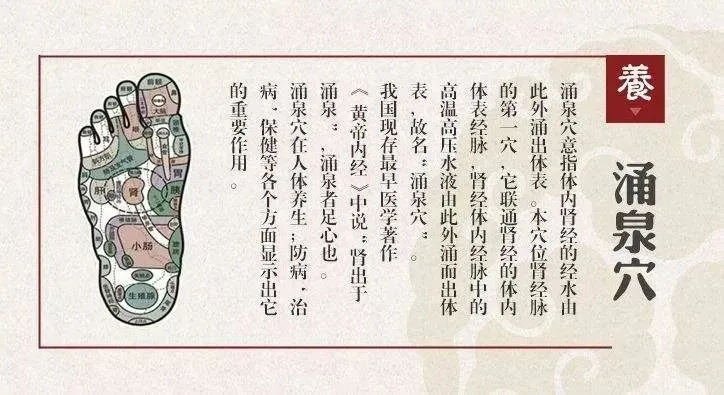 養
涌泉穴
涌泉穴意指体内肾经的经水由
此外涌出体表。本穴位肾经脉
的第一穴，它联通肾经的体内
体表经脉，肾经体内经脉中的
高温高压水液由此外涌而出体
表，故名“涌泉穴”。
我国现存最早医学著作
《黄帝内经》中说“肾出于
涌泉”，涌泉者足心也。
涌泉穴在人体养生；防病，治
病，保健等各个方面显示出它
的重要作用。
大脑
眼
耳
肝
肾
胰
小肠
生殖腺